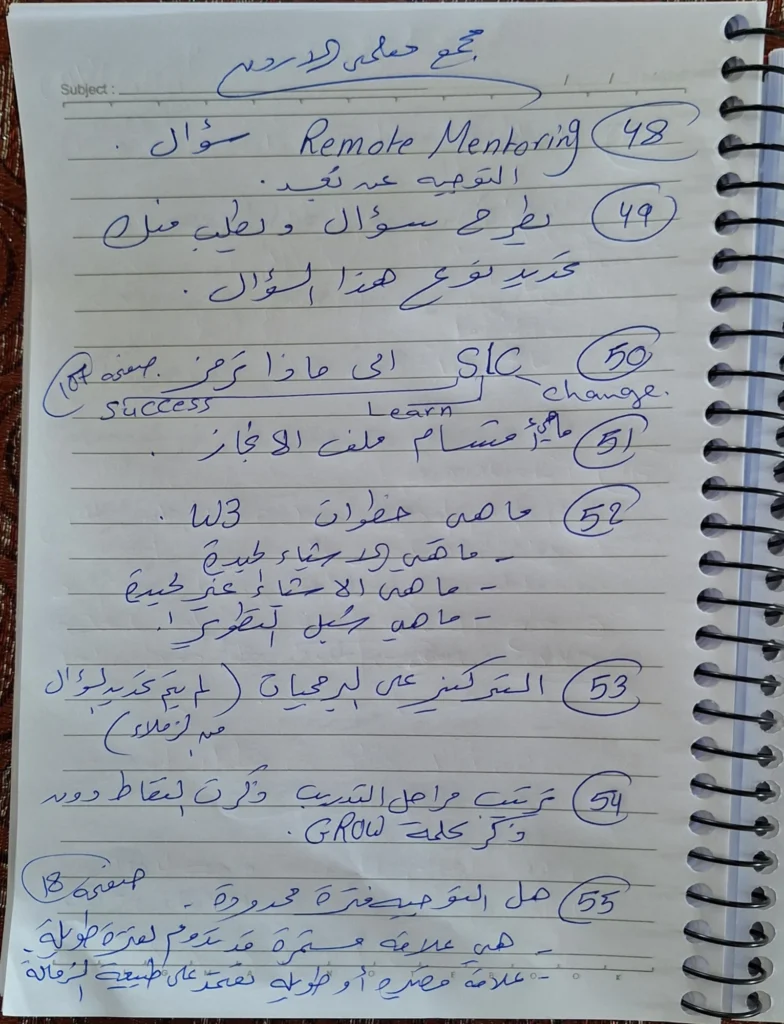 مجمع معلمي الاردن
Subject :
48 Remote Mentoring سؤال .
التوجيه عن بُعد .
49 يطرح سؤال ويطلب منك
تحديد نوع هذا السؤال .
50 SLC الى ماذا ترمز صفحة 107
change. Learn Success
51 ماهي أقسام ملف الانجاز .
52 ما هي خطوات W3 .
- ما هي الاشياء الجيدة
- ما هي الاشياء غير الجيدة
- ما هي سُبل التطوير !.
53 التركيز على البرمجيات ( لم يتم تحديد السؤال
من الزملاء )
54 ترتيب مراحل التدريب ذكرت النقاط دون
ذكر كلمة GROW .
55 هل التوجيه فترة محدودة . صفحة 18
- هي علاقة مستمرة قد تدوم لفترة طويلة .
- علاقة قصيرة أو طويلة تعتمد على طبيعة الزمالة